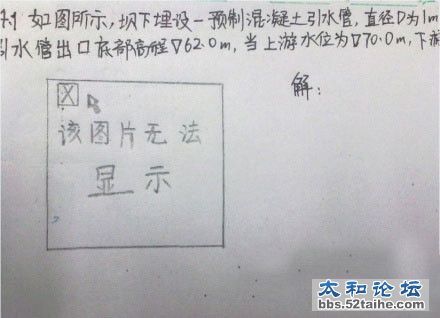 如图所示,坝下埋设一预制混凝土引水管,直径D为1m
引水管出口底部高程∇62.0m,当上游水位为∇70.0m,下游
解:
该图片无法
显示
太和论坛
bbs.52taihe.com